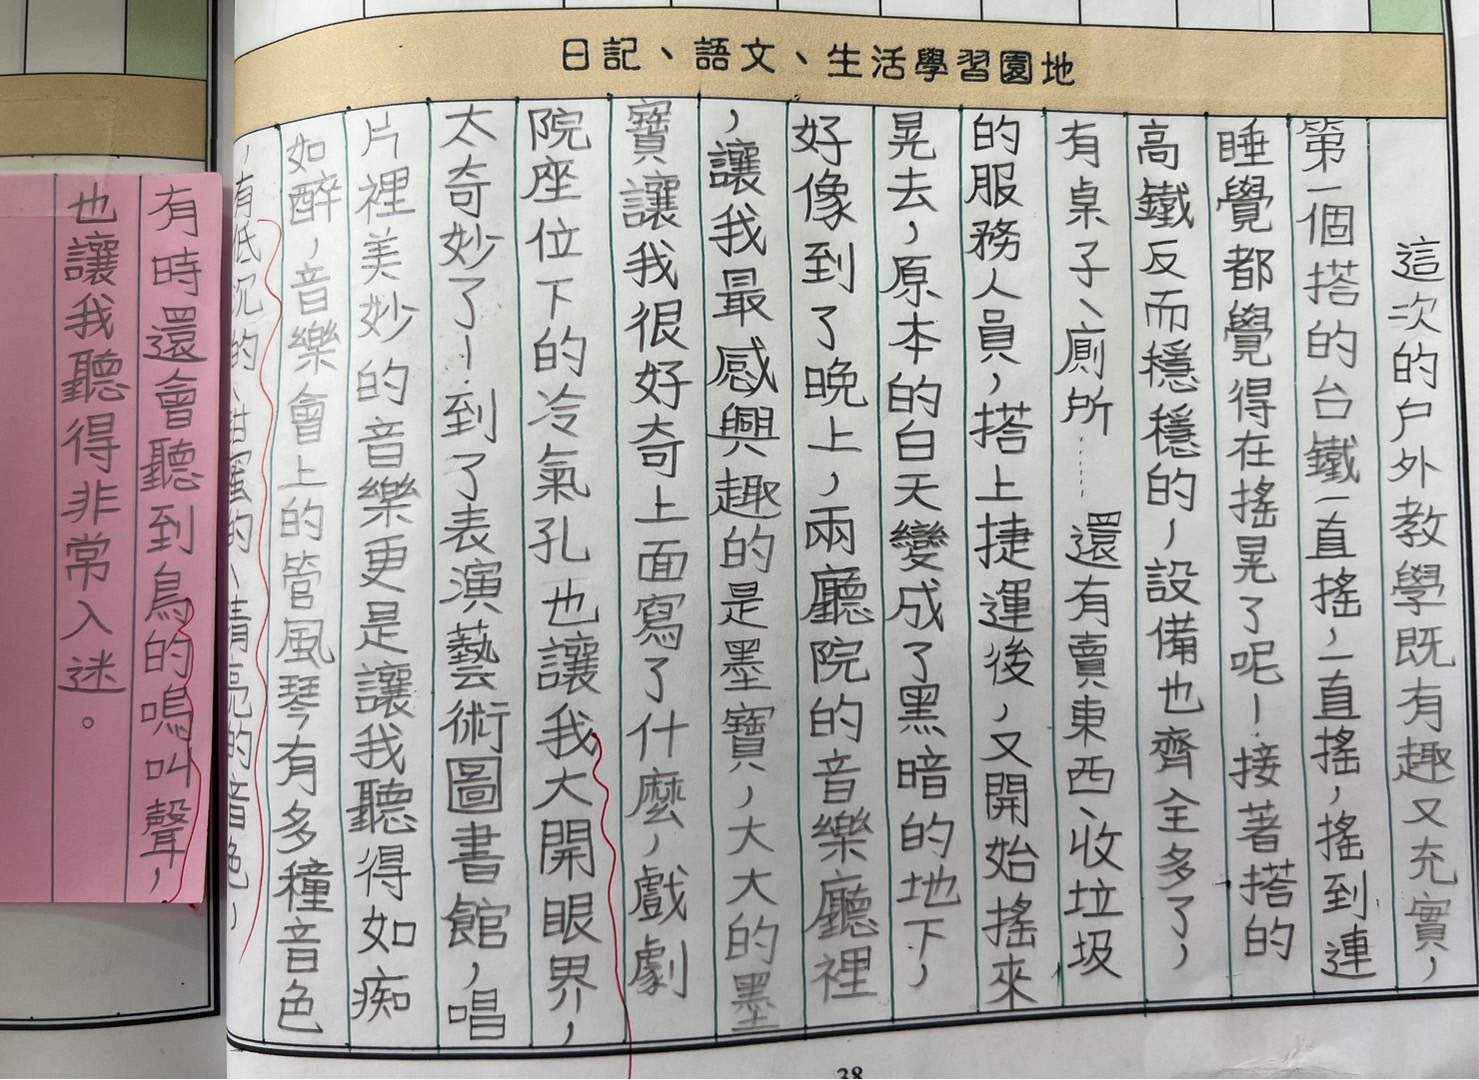 日記、語文、生活學習園地
這次的戶外教學既有趣又充實，
第一個搭的台鐵一直搖，一直搖，搖到連
睡覺都覺得在搖晃了呢！接著搭的
高鐵反而穩穩的，設備也齊全多了，
有桌子、廁所……還有賣東西、收垃圾
的服務人員，搭上捷運後，又開始搖來
晃去，原本的白天變成了黑暗的地下，
好像到了晚上，兩廳院的音樂廳裡
，讓我最感興趣的是墨寶，大大的墨
寶讓我很好奇上面寫了什麼，戲劇
院座位下的冷氣孔也讓我大開眼界，
太奇妙了！到了表演藝術圖書館，唱
片裡美妙的音樂更是讓我聽得如痴
如醉，音樂會上的管風琴有多種音色
，有低沉的、甜蜜的、清亮的音色，
有時還會聽到鳥的鳴叫聲，
也讓我聽得非常入迷。
38